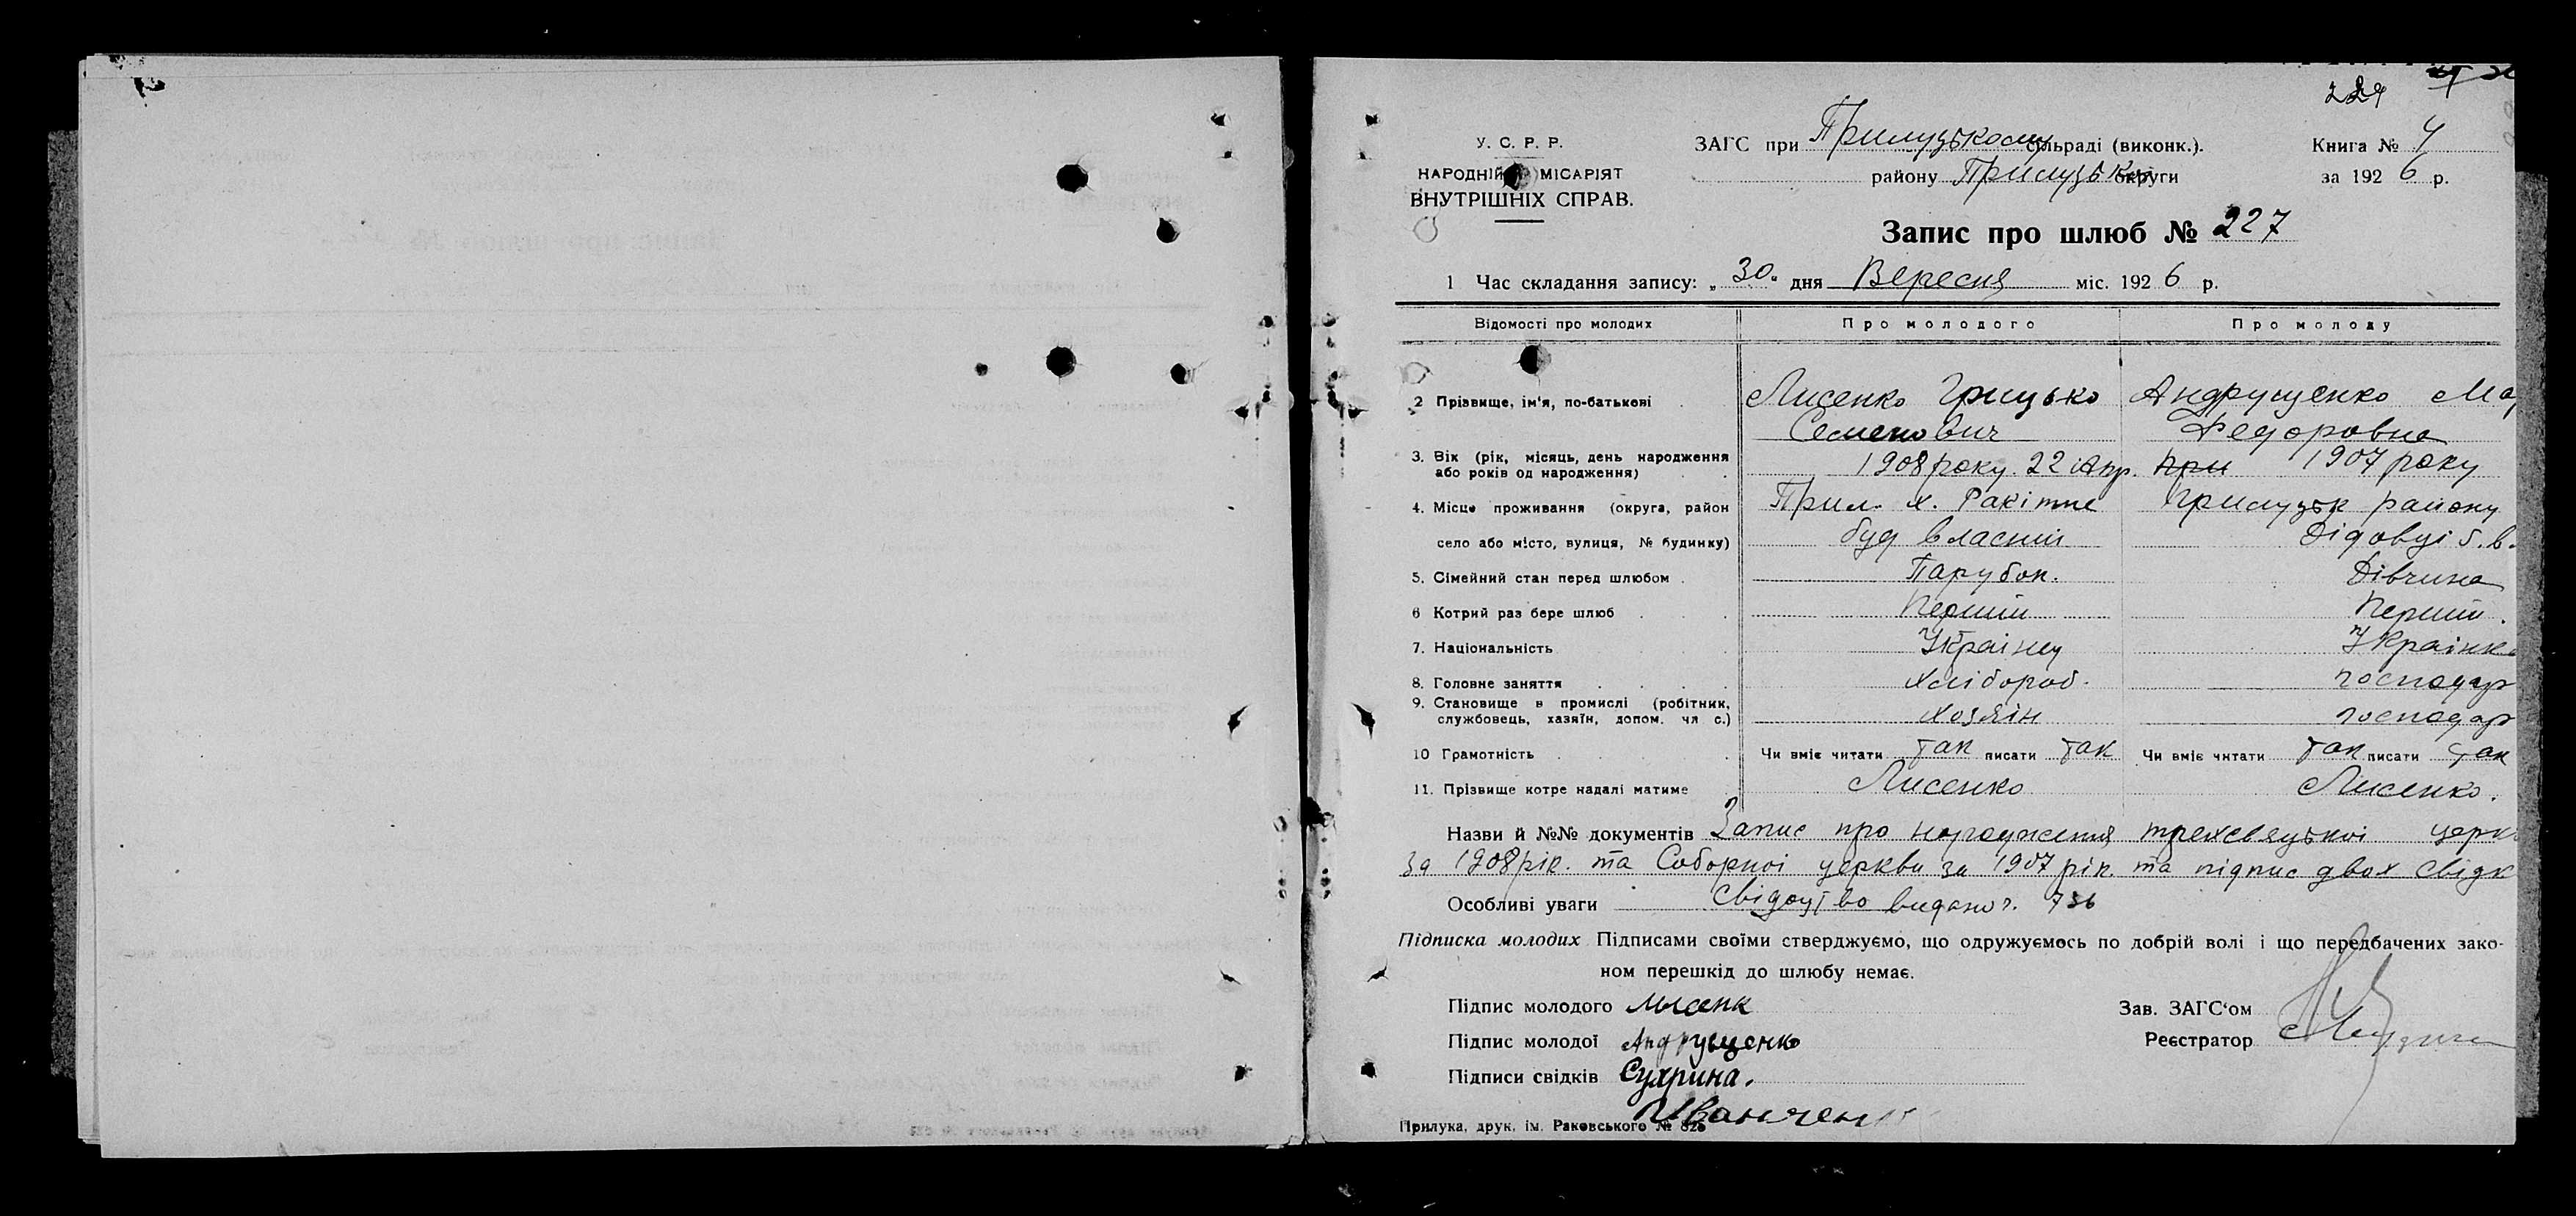 229
У. С. Р. Р.
НАРОДНІЙ МІСАРІЯТ
ВНУТРІШНІХ СПРАВ.
ЗАГС при Прилуцькому сільраді (виконк.).
району Прилуцької округи
Книга № 4
за 1926 р.
Запис про шлюб № 227
1 Час складання запису: „30“ дня Вересня міс. 1926 р.
Відомості про молодих Про молодого Про молоду
2 Прізвище, ім'я, по-батькові Лисенко Грицько Андрущенко Мар
Семенович Федоровна
3. Вік (рік, місяць, день народження
або років од народження) 1908 року 22 Апр. 1907 року
4. Місце проживання (округа, район Прил. х. Ракітне Прилузьк району
село або місто, вулиця, № будинку) буд власний Дідовці б. в.
5. Сімейний стан перед шлюбом . Парубок. Дівчина
6 Котрий раз бере шлюб Перший Перший.
7. Національність Українец Українка
8. Головне заняття Хлібороб. господар
9. Становище в промислі (робітник,
службовець, хазяїн, допом. чл с.) Хозяїн господар
10 Грамотність Чи вміє читати так писати так Чи вміє читати так писати так
11. Прізвище котре надалі матиме Лисенко Лисенко.
Назви й №№ документів Запис про народження трехсвяцькоі церкв
за 1908 рік. та Соборноі церкви за 1907 рік та підпис двох свідк
Особливі уваги Свідоцтво видано ч. 736
Підписка молодих Підписами своїми стверджуємо, що одружуємось по добрій волі і що передбачених зако-
ном перешкід до шлюбу немає.
Підпис молодого Лысенк
Підпис молодої Андрущенко
Підписи свідків Сухрина.
Иванчен
Зав. ЗАГС'ом
Реєстратор
Прилука, друк. ім. Раковського № 828